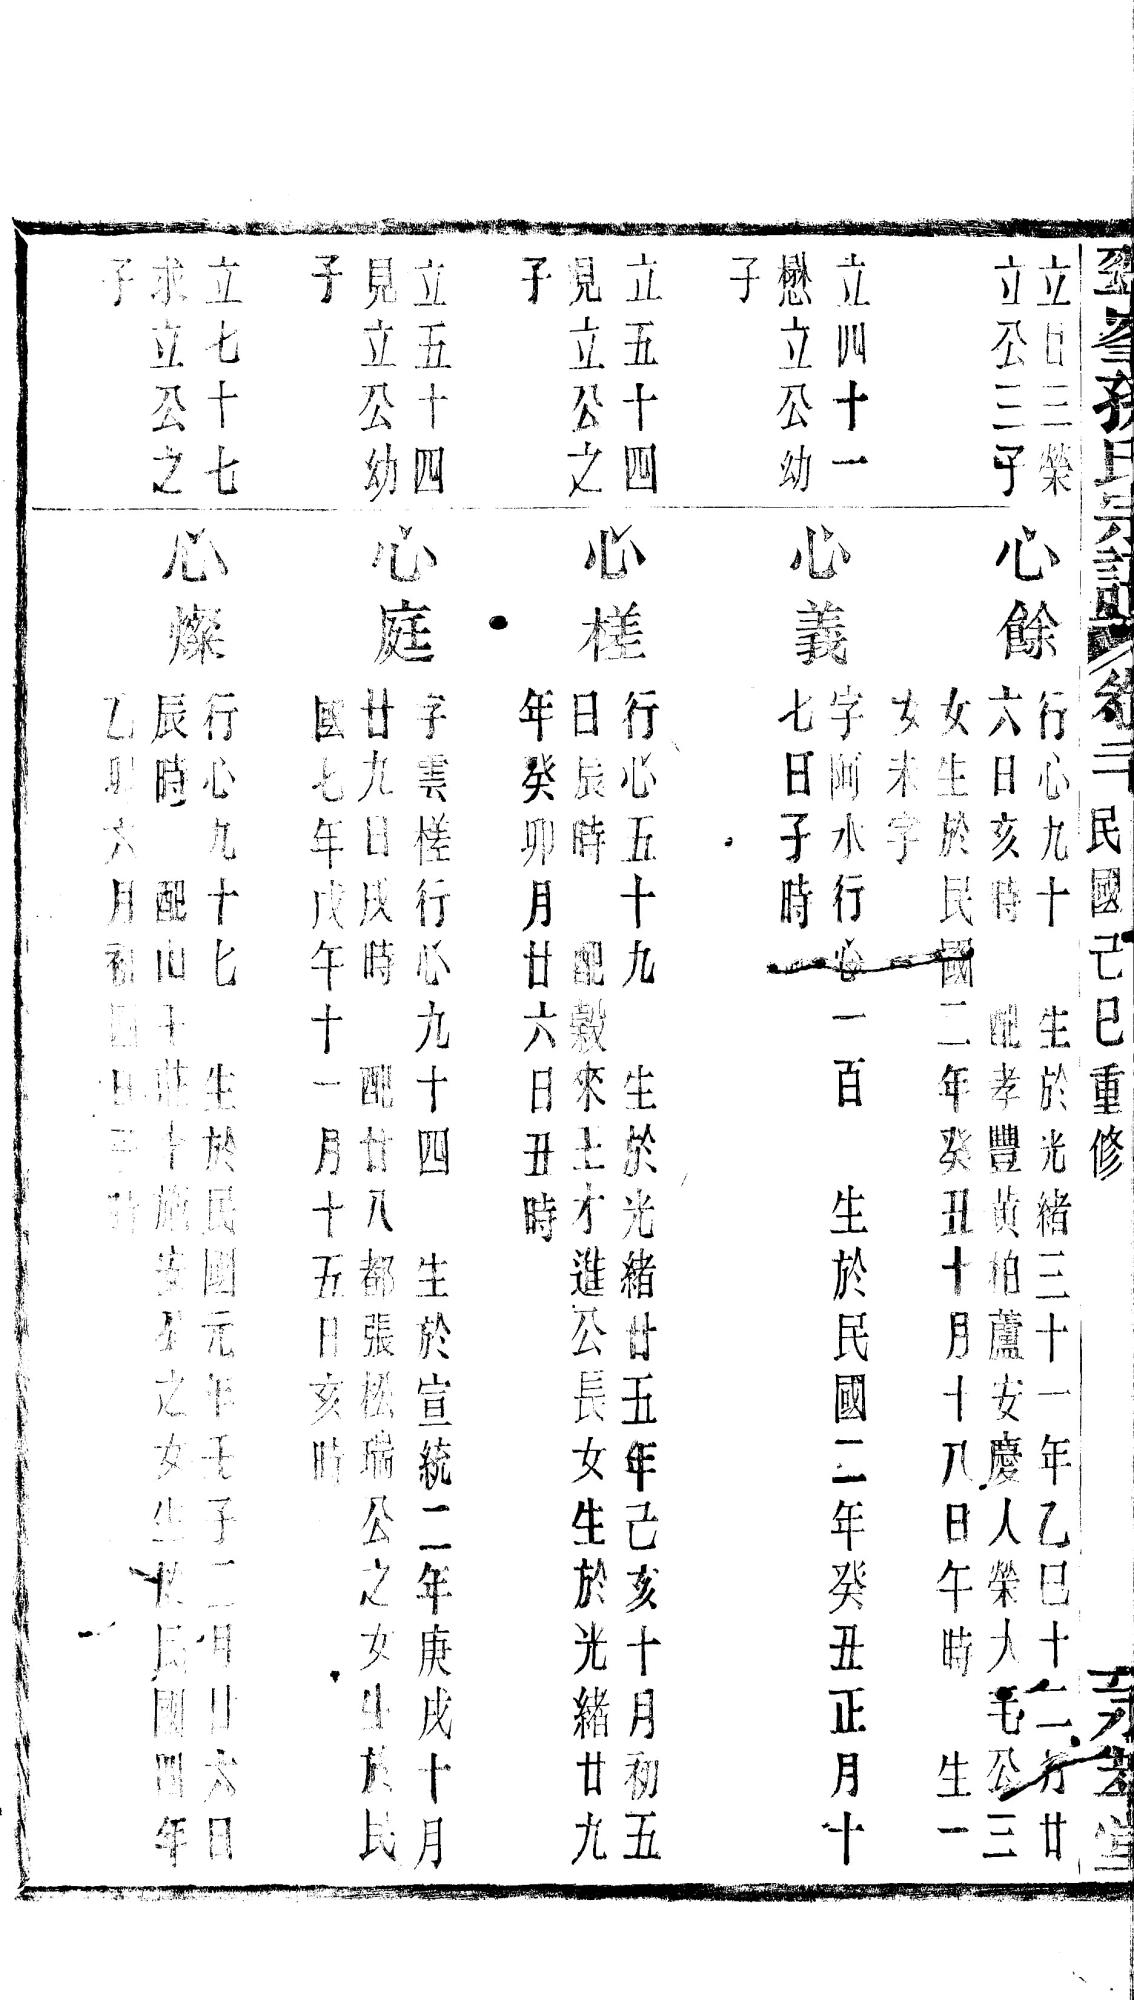 孫氏宗譜卷二
民國己巳重修
堂
立日三榮
立公三子
心餘
行心九十　生於光緒三十一年乙巳十二月廿
六日亥時　配孝豐黃柏蘆安慶人榮大毛公三
女生於民國二年癸丑十月十八日午時　生一
女未字
立四十一
懋立公幼
子
心義
字阿水行心一百　生於民國二年癸丑正月十
七日子時
立五十四
見立公之
子
心槎
行心五十九　生於光緒廿五年己亥十月初五
日辰時　配穀來土才進公長女生於光緒廿九
年癸卯月廿六日丑時
立五十四
見立公幼
子
心庭
字雲槎行心九十四　生於宣統二年庚戌十月
廿九日戌時　配廿八都張松瑞公之女生於民
國七年戊午十一月十五日亥時
立七十七
求立公之
子
心燦
行心九十七　生於民國元年壬子二月廿六日
辰時　配山安之女生於民國四年
乙卯六月初四日子時